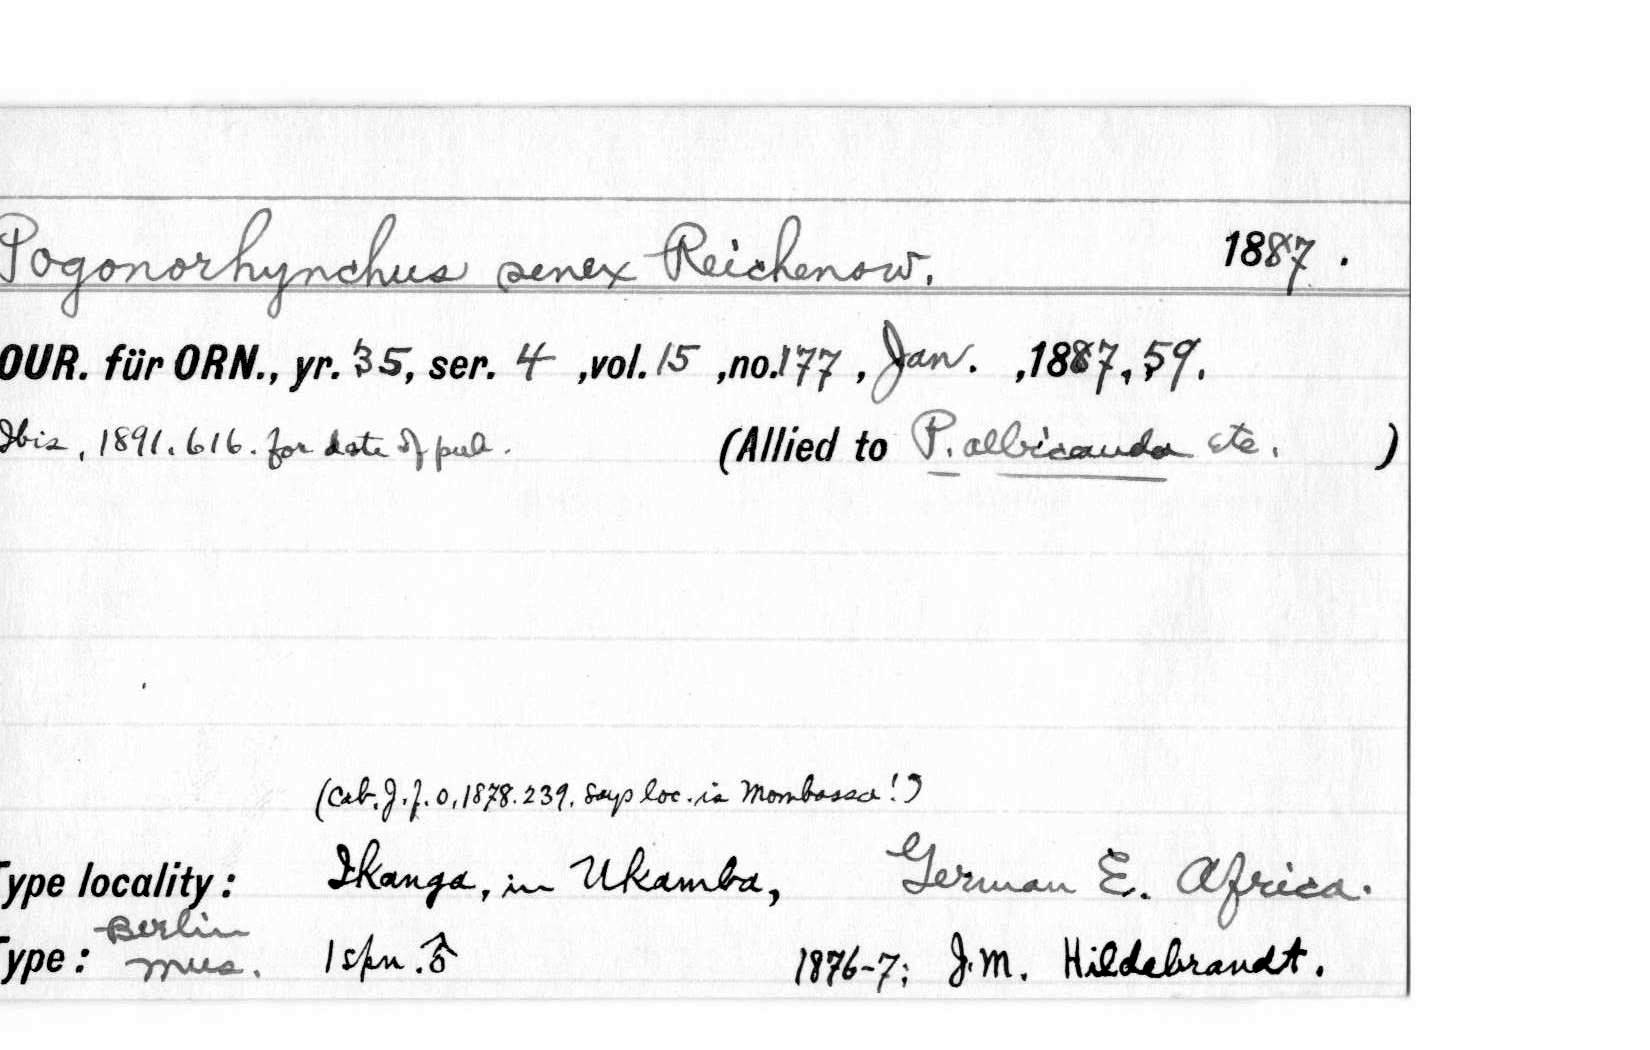 Pogonorhynchus senex Reichenow. 1887.
OUR. für ORN., yr. 35, ser. 4 ,vol. 15 ,no. 177 , Jan. ,1887, 59.
Ibis, 1891. 616. for date of pub. (Allied to P. albicauda etc. )
(Cab. J. f. O, 1878. 239. Says loc. is Mombassa!)
Type locality: Ikanga, in Ukamba, German E. Africa.
Berlin
Type: Mus. 1 spn. ♂ 1876-7; J. M. Hildebrandt.